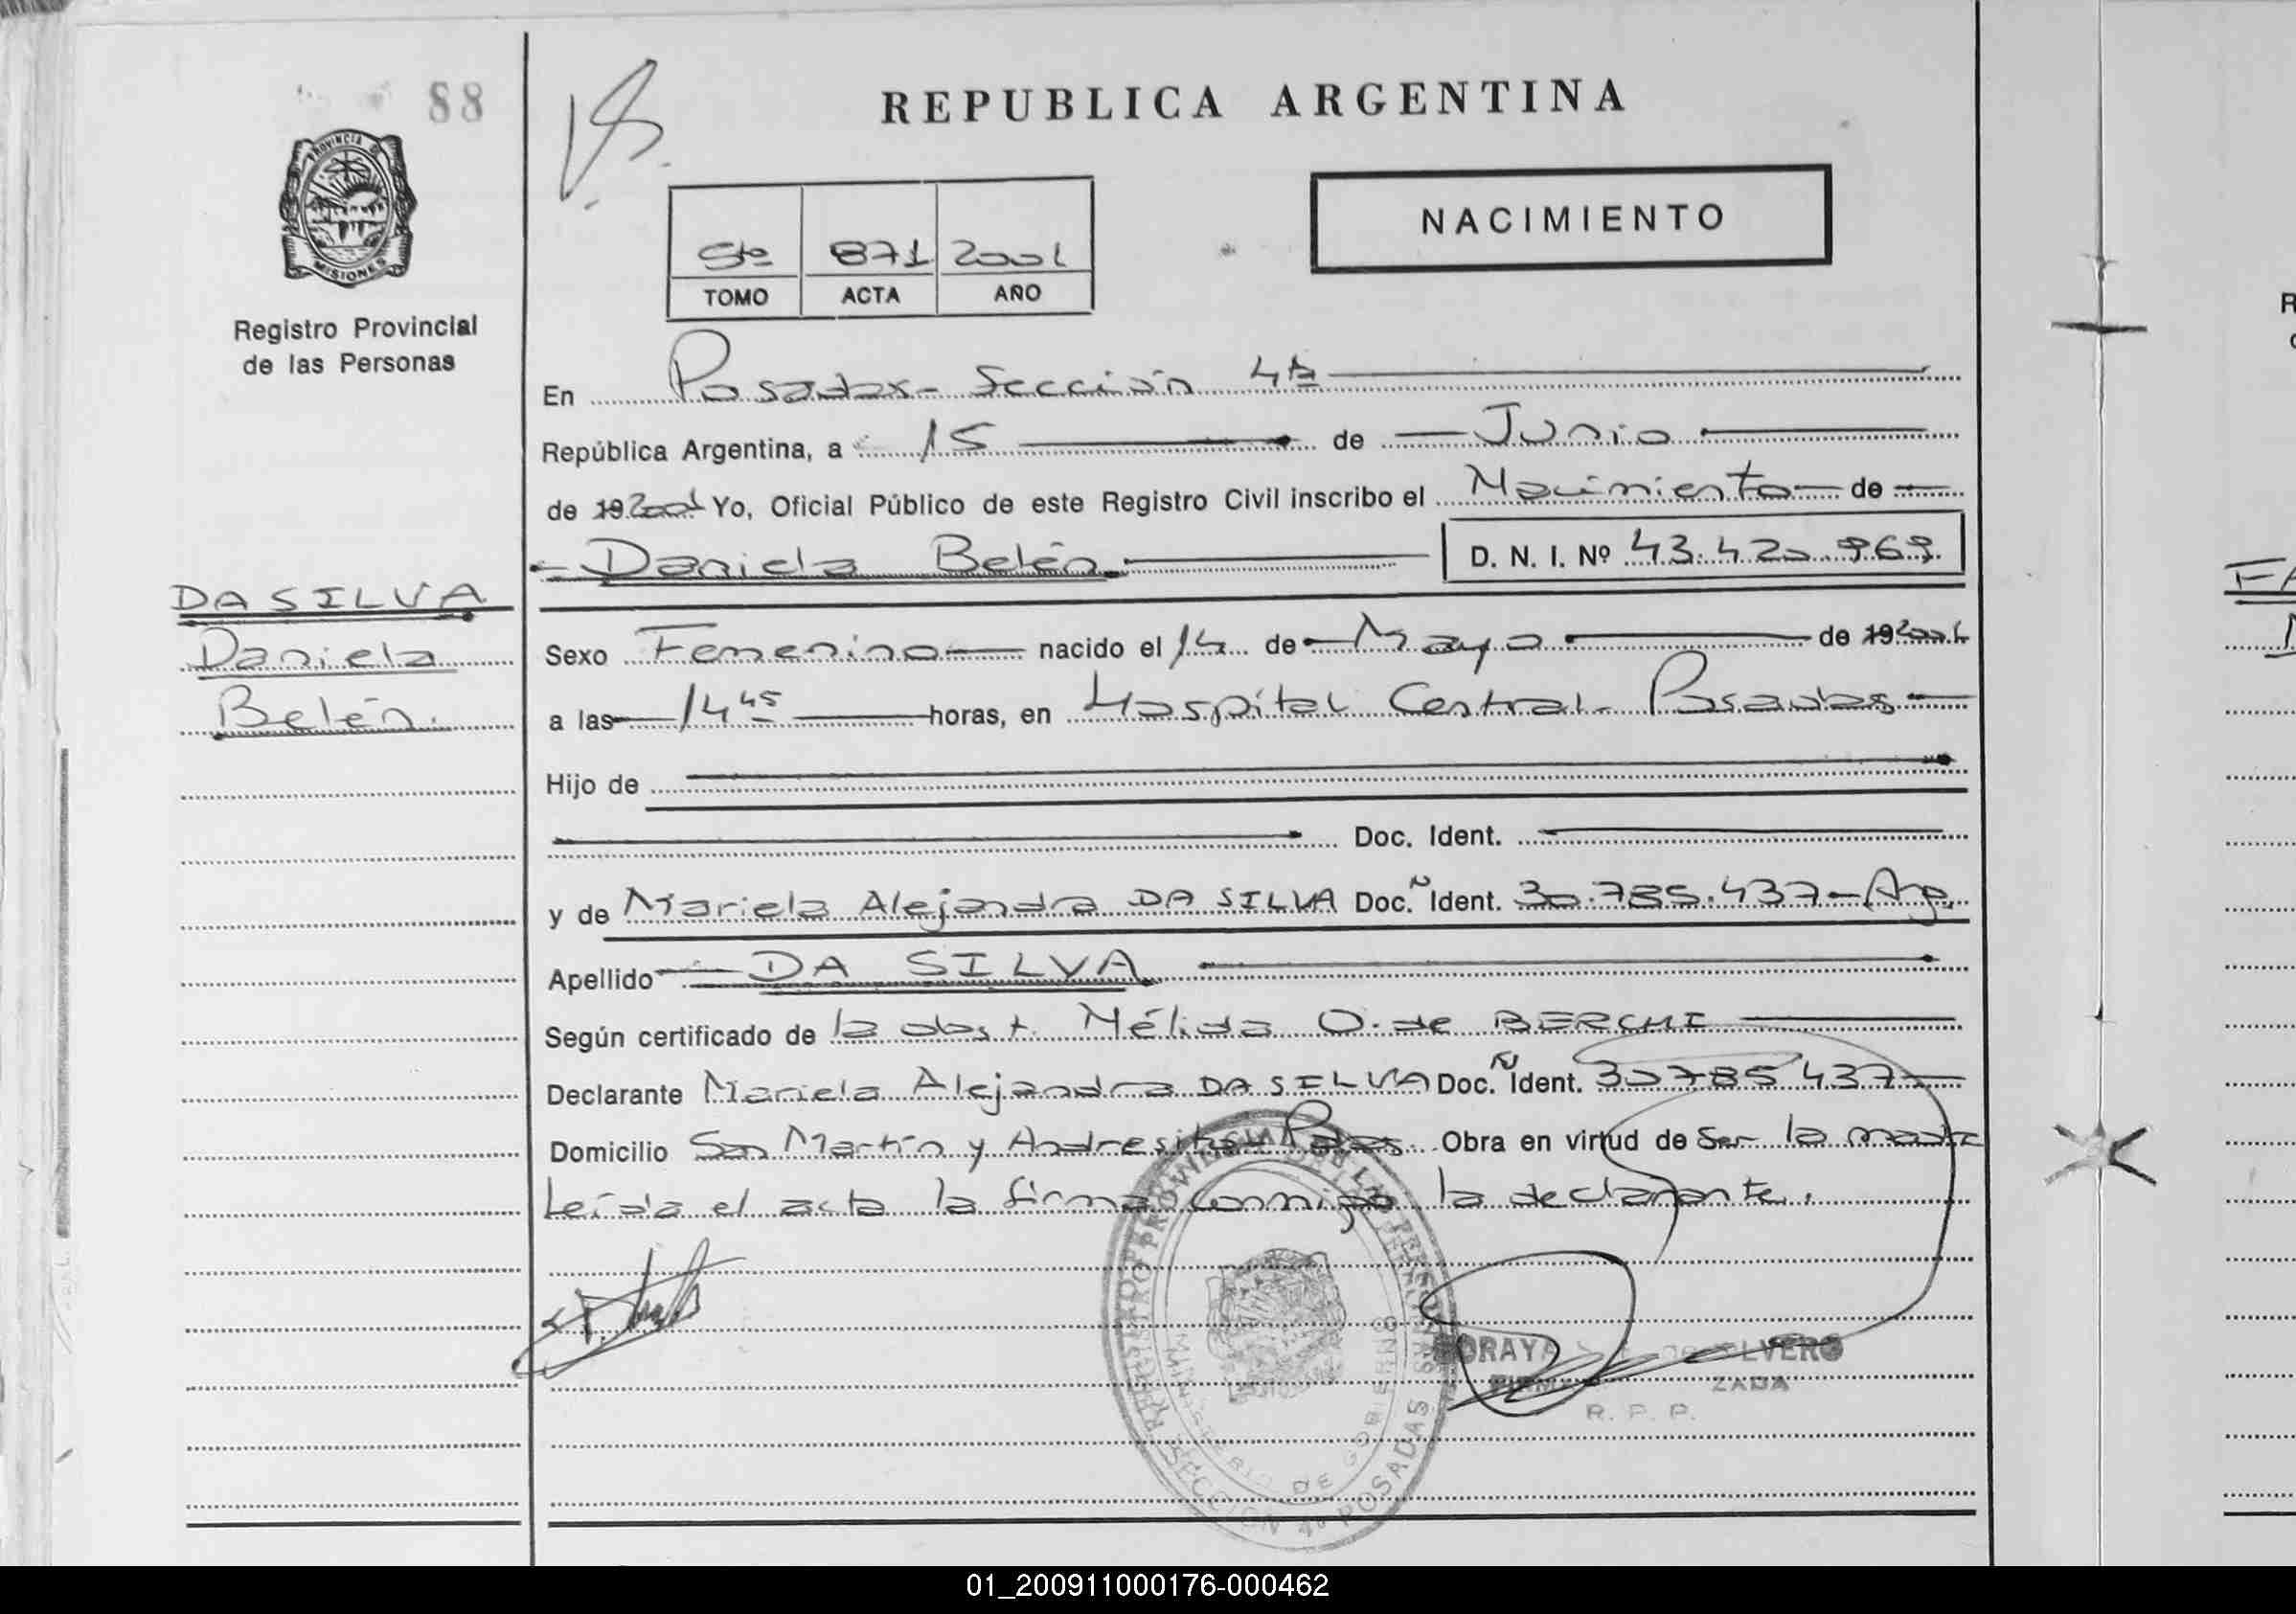 88
REPUBLICA ARGENTINA
NACIMIENTO
5to 871 2001
TOMO ACTA AÑO
PROVINCIA DE MISIONES
Registro Provincial
de las Personas
En Posadas - Sección 4ta
República Argentina, a 15 de Junio
de 19 2001 Yo, Oficial Público de este Registro Civil inscribo el Nacimiento de
Daniela Belén D. N. I. Nº 43.420.969
DA SILVA
Daniela
Belén.
Sexo Femenino nacido el 14 de Mayo de 19 2001
a las 14 45 horas, en Hospital Central - Posadas
Hijo de
Doc. Ident.
y de Mariela Alejandra DA SILVA Doc. N Ident. 30.785.437 - Arg.
Apellido DA SILVA
Según certificado de la obst. Nélida O. de BERCHI
Declarante Mariela Alejandra DA SILVA Doc. N Ident. 30785437
Domicilio San Martín y Andresito - Pdas. Obra en virtud de Ser la madre
Leída el acta la firma conmigo la declarante.
REGISTRO PROVINCIAL DE LAS PERSONAS
MINISTERIO DE GOBIERNO
SECCION 4º POSADAS
SORAYA
R. P. P.
01_200911000176-000462